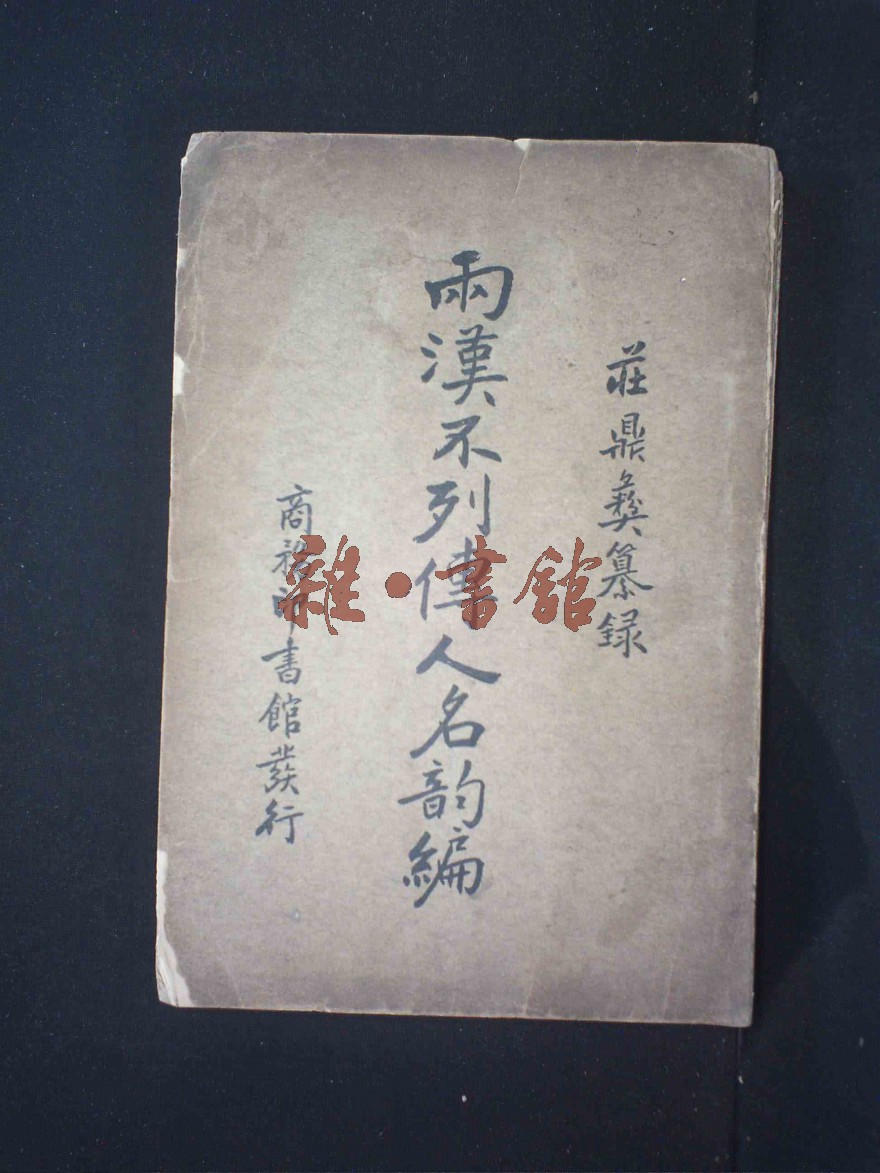 莊鼎彝纂録
兩漢不列傳人名韵編
商務印書館發行
雜·書館